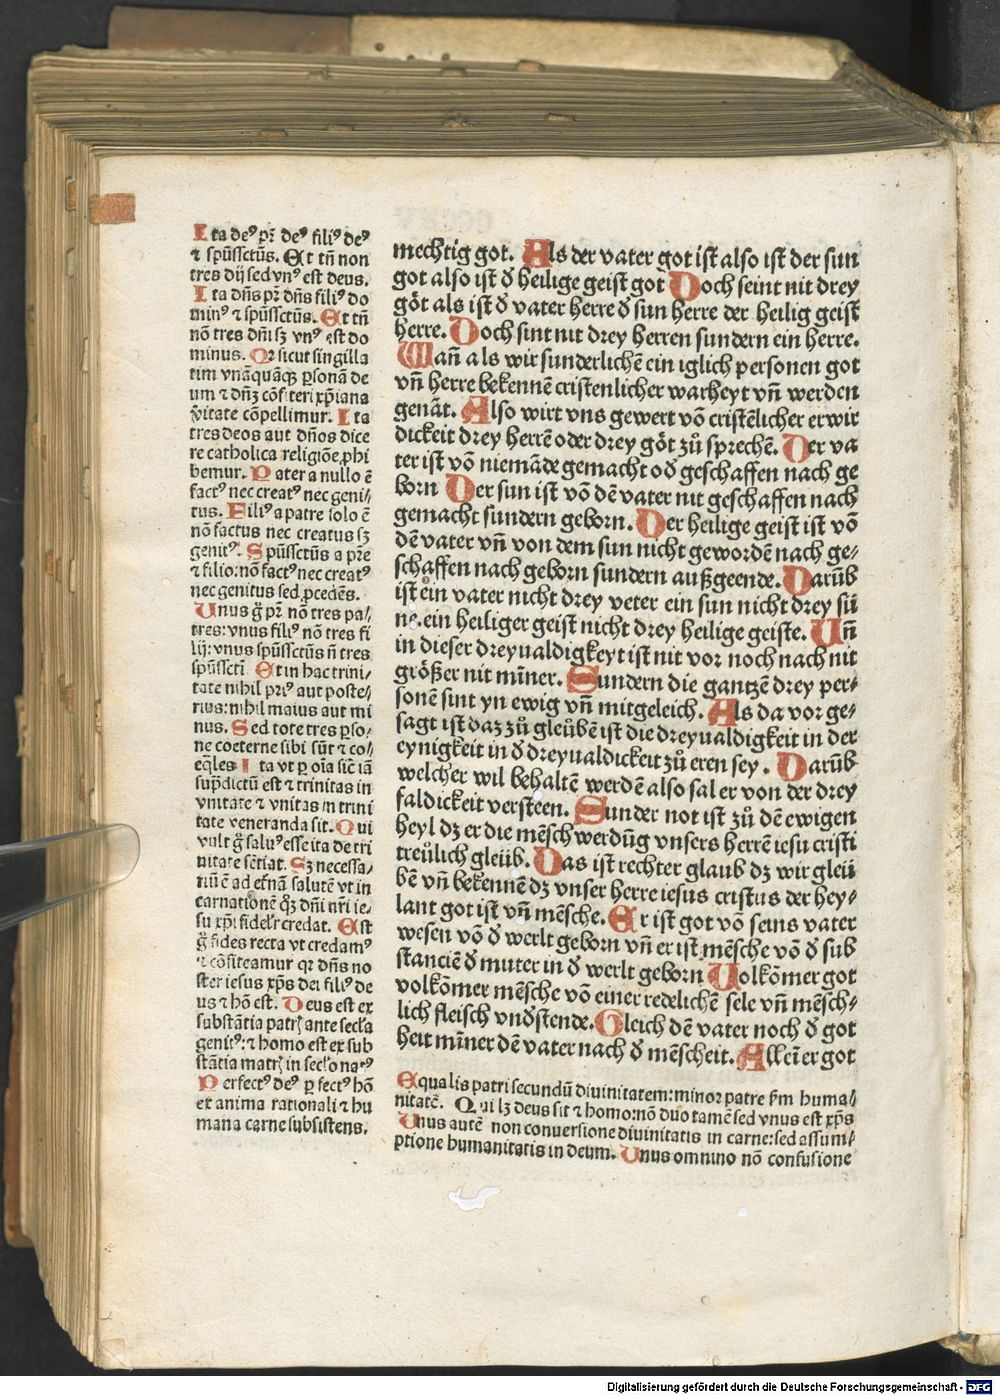 Ita deꝰ pr̄ deꝰ filiꝰ deꝰ
⁊ spūssctūs. Et tn̄ non
tres dij sed vnꝰ est deus.
Ita dn̄s pr̄ dn̄s filiꝰ do
minꝰ ⁊ spūssctūs. Et tn̄
nō tres dn̄i sꝫ vnꝰ est do
minus. Qꝛ sicut singilla
tim vnāquāqꝫ ꝑsonā de
um ⁊ dn̄ꝫ cōfiteri xp̄iana
v̾itate cōpellimur. Ita
tres deos aut dn̄os dice
re catholica religiōe ꝓhi
bemur. Pater a nullo ē
factꝰ nec creatꝰ nec geni⸗
tus. Filiꝰ a patre solo ē
nō factus nec creatus sꝫ
genitꝰ. Spūssctūs a pr̄e
⁊ filio: nō factꝰ nec creatꝰ
nec genitus sed ꝓcedēs.
Unus g̾ pr̄ nō tres pa⸗
tres: vnus filiꝰ nō tres fi
lij: vnus spūssctūs n̄ tres
spūssctī Et in hac trini⸗
tate nihil priꝰ aut poste⸗
rius: nihil maius aut mi
nus. Sed tote tres ꝑso⸗
ne coeterne sibi sūt ⁊ co⸗
eq̄les Ita vt ꝑ oīa sic̄ iā
sup̄dictū est ⁊ trinitas in
vnitate ⁊ vnitas in trini
tate veneranda sit. Qui
vult g̾ saluꝰ esse ita de tri
nitate sētiat. Sꝫ necessa⸗
riū ē ad et̾nā salutē vt in
carnationē qꝫ dn̄i nr̄i ie⸗
su xp̄i fidel̾r credat. Est
g̾ fides recta vt credamꝰ
⁊ cōfiteamur qꝛ dn̄s no
ster iesus xp̄s dei filiꝰ de
us ⁊ hō est. Deus est ex
substātia patrꝭ ante secl̾a
genitꝰ: ⁊ homo est ex sub
stātia matrꝭ in secl̾o natꝰ
Perfectꝰ deꝰ ꝑfectꝰ hō
ex anima rationali ⁊ hu
mana carne subsistens.
mechtig got. Als der vater got ist also ist der sun
got also ist d̾ heilige geist got Doch seint nit drey
göt als ist d̾ vater herre d̾ sun herre der heilig geist
herre. Doch sint nit drey herren sundern ein herre.
Wañ als wir sunderlichē ein iglich personen got
vñ herre bekennē cristenlicher warheyt vñ werden
genāt. Also wirt vns gewert vō cristēlicher erwir
dickeit drey herrē oder drey göt zů sprechē. Der va
ter ist vō niemāde gemacht od̾ geschaffen nach ge
born Der sun ist vō dē vater nit geschaffen nach
gemacht sundern geborn. Der heilige geist ist vō
dē vater vñ von dem sun nicht gewordē nach ge⸗
schaffen nach geborn sundern außgeende. Darūb
ist ein vater nicht drey veter ein sun nicht drey sü
ne. ein heiliger geist nicht drey heilige geiste. Uñ
in dieser dreyualdigkeyt ist nit vor noch nach nit
größer nit mīner. Sundern die gantzē drey per⸗
sonē sint yn ewig vñ mitgeleich. Als da vor ge⸗
sagt ist daz zů gleůbē ist die dreyualdigkeit in der
eynigkeit in d̾ dreyualdickeit zů eren sey. Darūb
welcher wil behaltē werdē also sal er von der drey
faldickeit versteen. Sunder not ist zů dē ewigen
heyl dꝫ er die mēsch werdūg vnsers herrē iesu cristi
treůlich gleüb. Das ist rechter glaub dꝫ wir gleü
bē vñ bekennē dꝫ vnser herre iesus cristus der hey⸗
lant got ist vñ mēsche. Er ist got vō seins vater
wesen vō d̾ werlt geborn vñ er ist mēsche vō d̾ sub
stanciē d̾ muter in d̾ werlt geborn Uolkōmer got
volkōmer mēsche vō einer redelichē sele vñ mēsch⸗
lich fleisch vnd̾stende. Gleich dē vater noch d̾ got
heit mīner dē vater nach d̾ mēscheit. Alleī er got
Equalis patri secundū diuinitatem: minor patre ẜm huma⸗
nitatē. Qui lꝫ deus sit ⁊ homo: nō duo tamē sed vnus est xp̄s
Unus autē non conuersione diuinitatis in carne: sed assum⸗
ptione humanitatis in deum. Unus omnino nō confusione
Digitalisierung gefördert durch die Deutsche Forschungsgemeinschaft - DFG